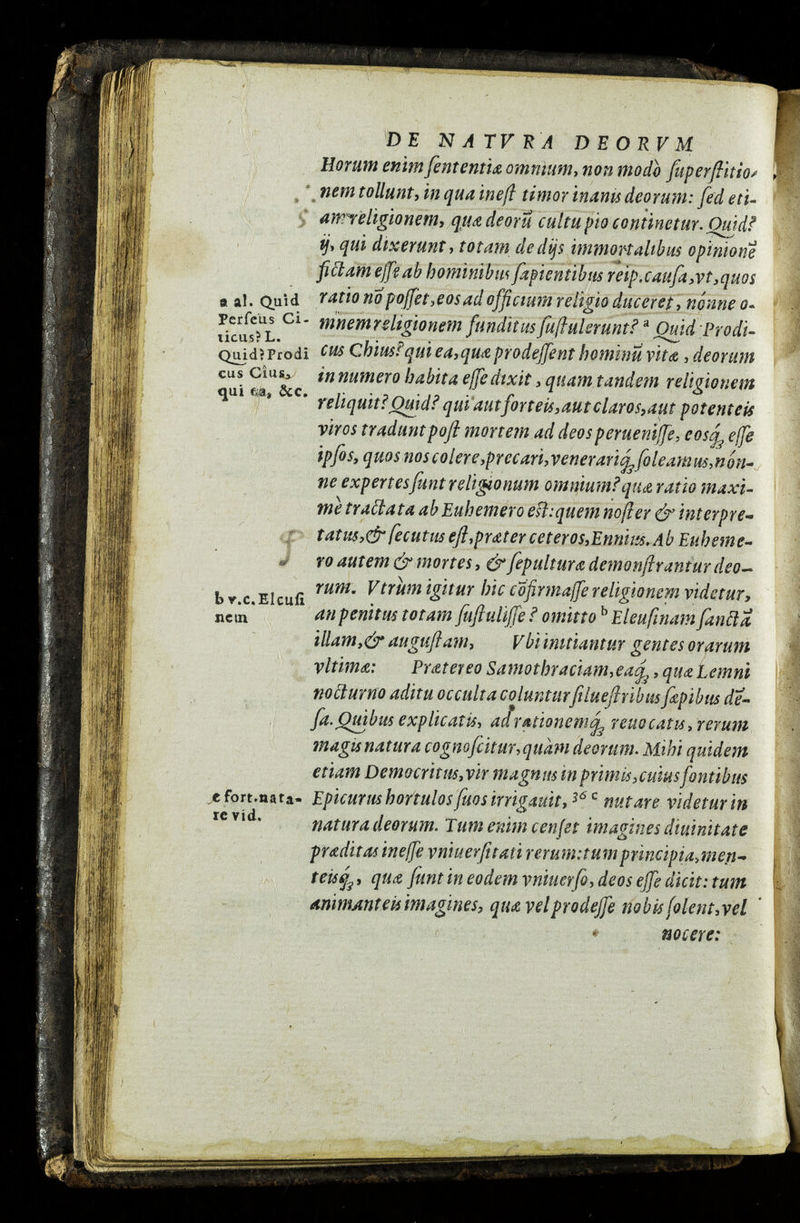 DE NATVRA DEORVM
Horum enim ſententiæ omnium, non modò ſuperſtitio-
nem tollunt, in qua ineſt timor inanis deorum: ſed eti-
am religionem, quæ deorũ cultu pio continetur. Quid?
ij, qui dixerunt, totam de dijs immortalibus opinionẽ
fictam eſſe ab hominibus ſapientibus reip. cauſa, vt, quos
ratio nõ poſſet, eos ad officium religio duceret, nónne o-
mnem religionem funditus ſuſtulerunt? ª Quid Prodi-
cus Chius? qui ea, quæ prodeſſent hominũ vitæ, deorum
in numero habita eſſe dixit, quam tandem religionem
reliquit? Quid? qui aut forteis, aut claros, aut potenteis
viros tradunt poſt mortem ad deos perueniſſe, eosq́ꝫ eſſe
ipſos, quos nos colere, precari, venerariq́ꝫ ſoleamus, nón-
ne expertes ſunt religionum omnium? quæ ratio maxi-
mè tractata ab Euhemero eſt: quem noſter & interpre-
tatus, & ſecutus eſt, præter ceteros, Ennius. Ab Euheme-
ro autem & mortes, & ſepulturæ demonſtrantur deo-
rum. Vtrùm igitur hic cõfirmaſſe religionem videtur,
an penitus totam ſuſtuliſſe? omitto ᵇ Eleuſinam ſanctã
illam, & auguſtam, Vbi initiantur gentes orarum
vltimæ: Prætereo Samothraciam, eaq́ꝫ, quæ Lemni
nocturno aditu occulta coluntur ſilueſtribus ſæpibus dẽ-
ſa. Quibus explicatis, ad rationemq́ꝫ reuocatis, rerum
magis natura cognoſcitur, quàm deorum. Mihi quidem
etiam Democritus, vir magnus in primis, cuius fontibus
Epicurus hortulos ſuos irrigauit, ³⁶ ᶜ nutare videtur in
natura deorum. Tum enim cenſet imagines diuinitate
præditas ineſſe vniuerſitati rerum: tum principia, men-
teisq́ꝫ, quæ ſunt in eodem vniuerſo, deos eſſe dicit: tum
animanteis imagines, quæ vel prodeſſe nobis ſolent, vel
nocere:
a al. Quid
Perſeus Ci-
ticus? L.
Quid? Prodi
cus Cius,
qui ea, &c.
b v.c. Elcuſi
nem
c fort. nata-
re vid.